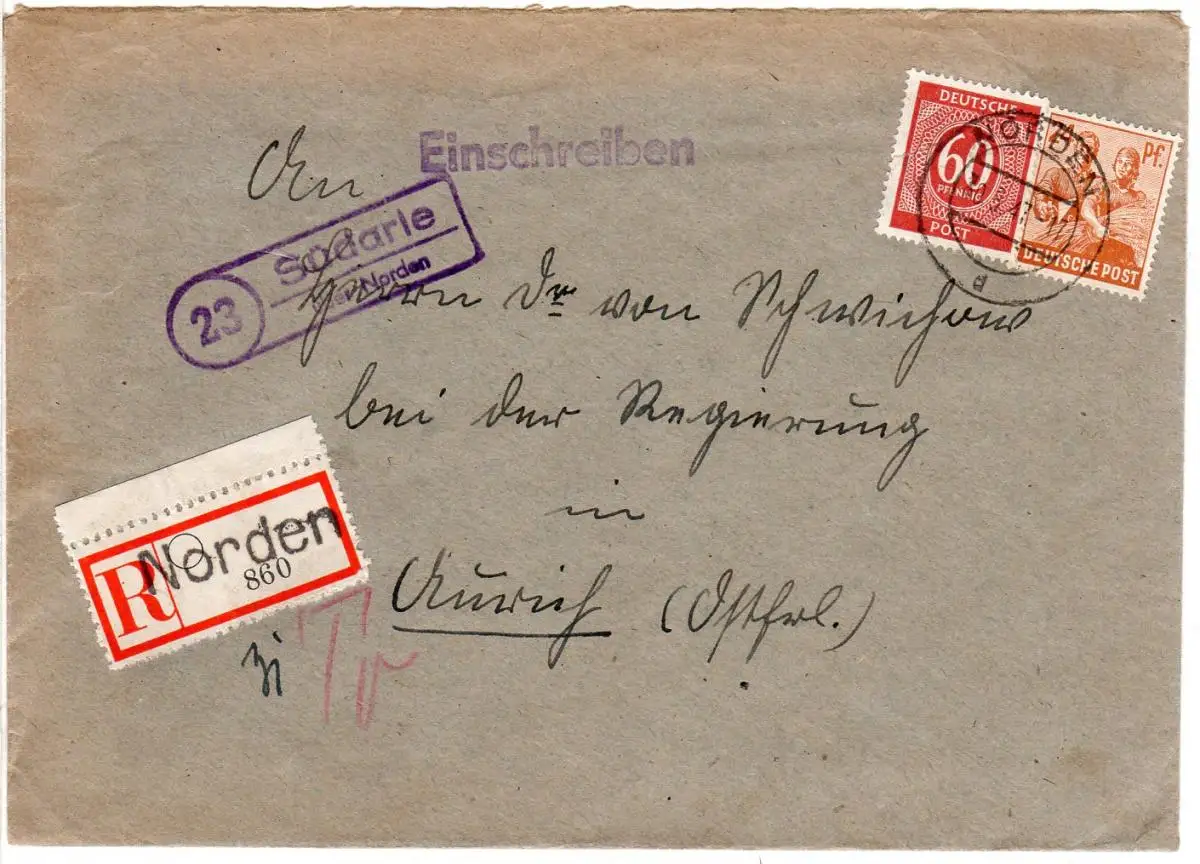 Einschreiben
An
23 Süderle
über Norden
Herrn Dr. von Schwichow
bei der Regierung
in
Aurich (Ostfrl.)
R Norden
860
DEUTSCHE
60
PFENNIG
POST
Pf.
DEUTSCHE POST
NORDEN
a